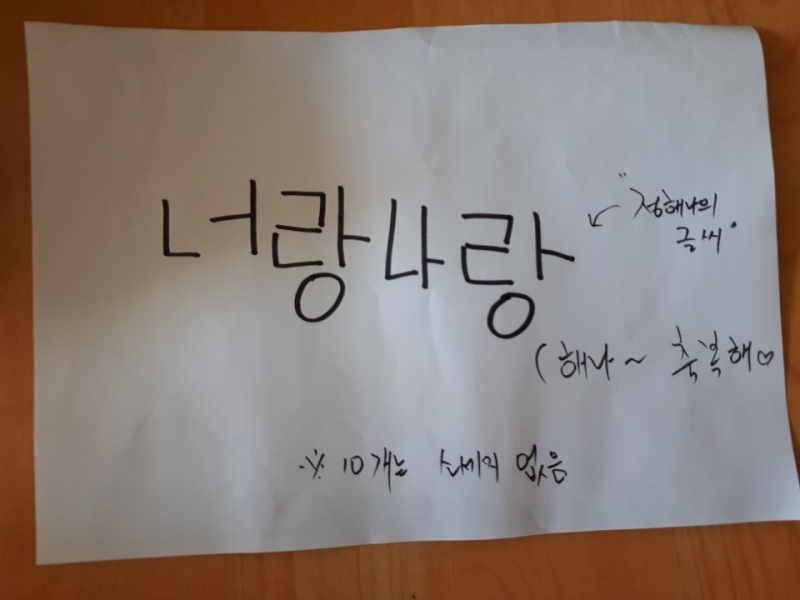 너랑나랑
↙ "정해나의
글씨"
(해나~ 축복해♡
※ 10개는 없음